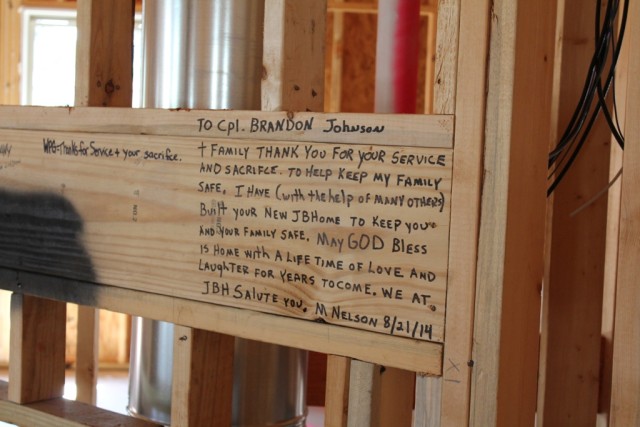 TO Cpl. BRANDON Johnson
+ FAMILY THANK YOU FOR YOUR SERVICE
AND SACRIFCE. TO HELP KEEP MY FAMILY
SAFE. I HAVE (with the help of MANY OTHERS)
Built your New JBHome TO KEEP YOU
AND YOUR FAMILY SAFE. MAY GOD Bless
IS HOME WITH A LIFE TIME OF LOVE AND
LAUGHTER FOR YEARS TO COME. WE AT
JBH SALUTE YOU. M NELSON 8/21/14
Thanks for Service + your sacrifice.